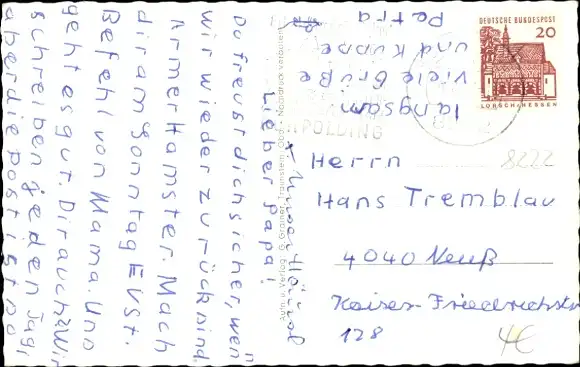 Lieber Papa!
Du freust dich sicher, wen
wir wieder zurück sind.
Armer Hamster. Mach
dir am Sonntag Evst.
Befehl von Mama. Uns
geht es gut. Dir auch? Wir
schreiben jeden Tag,
aber die Post ist so
langsam
Viele Grüße
und Küsse
Petra
DEUTSCHE BUNDESPOST
20
LORSCH/HESSEN
POLDING
8222
Herrn
Hans Tremblau
4040 Neuß
Kaiser-Friedrichstr
128
4€